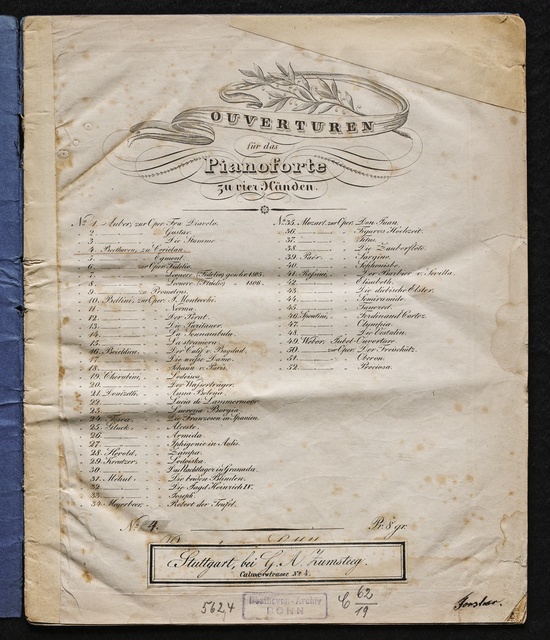 OUVERTUREN
für das
Pianoforte
zu vier Händen.
No. 1. Auber, zur Oper Fra Diavolo.
2. Gustav.
3. Die Stumme.
4. Beethoven, zu Coriolan.
5. Egmont.
6. zur Oper Fidelio.
7. Leonore (Fidelio) gen. in 1805.
8. Leonore (Fidelio) 1806.
9. zu Prometeus.
10. Bellini, zur Oper. I. Montecchi.
11. Norma.
12. Der Pirat.
13. Die Puritaner.
14. La Sonnambula.
15. La straniera.
16. Boieldieu. Der Calif v. Bagdad.
17. Die weisse Dame.
18. Johann v. Paris.
19. Cherubini, Lodoiska.
20. Der Wasserträger.
21. Donizetti, Anna Bolena
22. Lucia di Lammermoor
23. Lucrezia Borgia.
24. Die Franzosen in Spanien.
25. Gluck, Alceste.
26. Armida.
27. Iphigenie in Aulis.
28. Herold. Zampa.
29. Kreutzer. Lodoiska.
30. Das Nachtlager in Granada.
31. Mehul. Die beiden Blinden.
32. Die Jagd Heinrich IV.
33. Joseph.
34. Meyerbeer, Robert der Teufel.
No. 35. Mozart, zur Oper. Don Juan.
36. Figaros Hochzeit.
37. Titus.
38. Die Zauberflöte.
39. Paër. Sargino.
40. Sophonisbe.
41. Rossini, Der Barbier v. Sevilla.
42. Elisabeth.
43. Die diebische Elster.
44. Semiramide.
45. Tancred.
46. Spontini, Ferdinand Cortez.
47. Olympia.
48. Die Vestalin.
49. Weber, Jubel-Ouverture.
50. zur Oper. Der Freischütz.
51. Oberon.
52. Preciosa.
No. 4. Pr. 8 gr.
Stuttgart, bei G. A. Zumsteeg.
Calwerstrasse No. 4.
5624
Beethoven-Archiv
BONN
C 62
19